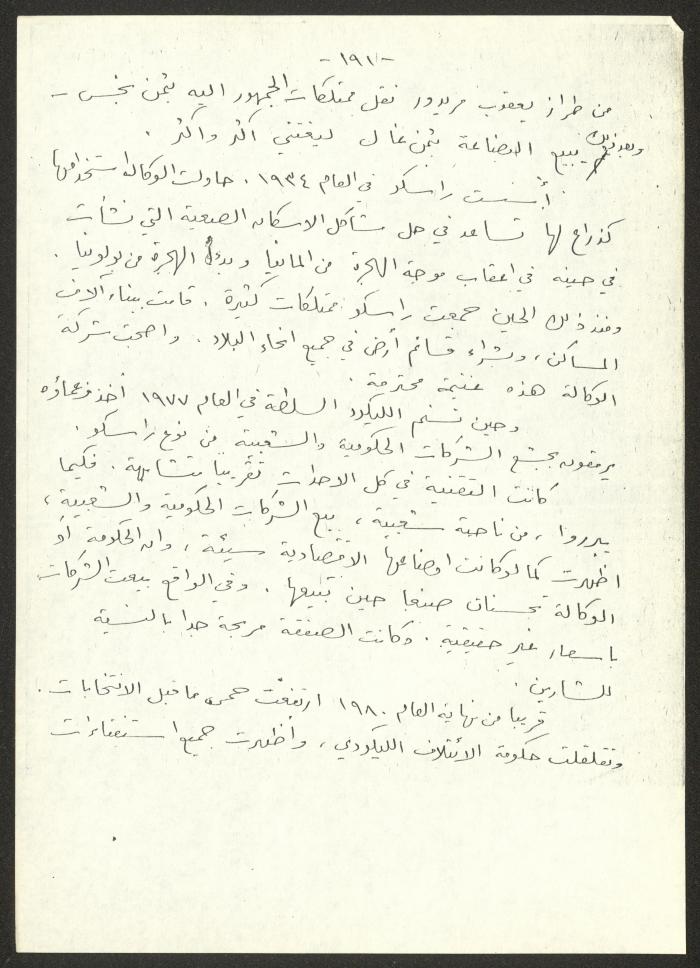 -١٩١-
من طراز يعقوب مريدور نقل ممتلكات الجمهور اليه بثمن بخس -
وبعد ذلك يبيع البضاعة بثمن غال ليغتني اكثر واكثر .
أسست راسكو في العام ١٩٣٤ . حاولت الوكالة استخدامها
كذراع لها تساعد في حل مشاكل الاسكان الصعبة التي نشأت
في حينه في اعقاب موجة الهجرة من المانيا وبدء الهجرة من بولونيا .
ومنذ ذلك الحين جمعت راسكو ممتلكات كثيرة . قامت ببناء آلاف
المساكن ، وبشراء قسائم أرض في جميع انحاء البلاد . واصبحت شركة
الوكالة هذه غنيمة محترمة .
وحين تسنم الليكود السلطة في العام ١٩٧٧ أخذ زعماؤه
يرمقون بجشع الشركات الحكومية والشعبية من نوع راسكو .
كانت التقنية في كل الاحداث تقريبا متشابهة . فكيما
يبرروا ، من ناحية شعبية ، بيع الشركات الحكومية والشعبية ،
اظهرت كما لو كانت اوضاعها الاقتصادية سيئة ، وان الحكومة أو
الوكالة تحسنان صنعا حين تبيعها . وفي الواقع بيعت الشركات
باسعار غير حقيقية . وكانت الصفقة مربحة جدا بالنسبة
للشارين .
قريبا من نهاية العام ١٩٨٠ ارتفعت حمى ما قبل الانتخابات .
وتقلقلت حكومة الائتلاف الليكودي ، وأظهرت جميع استفتاءات